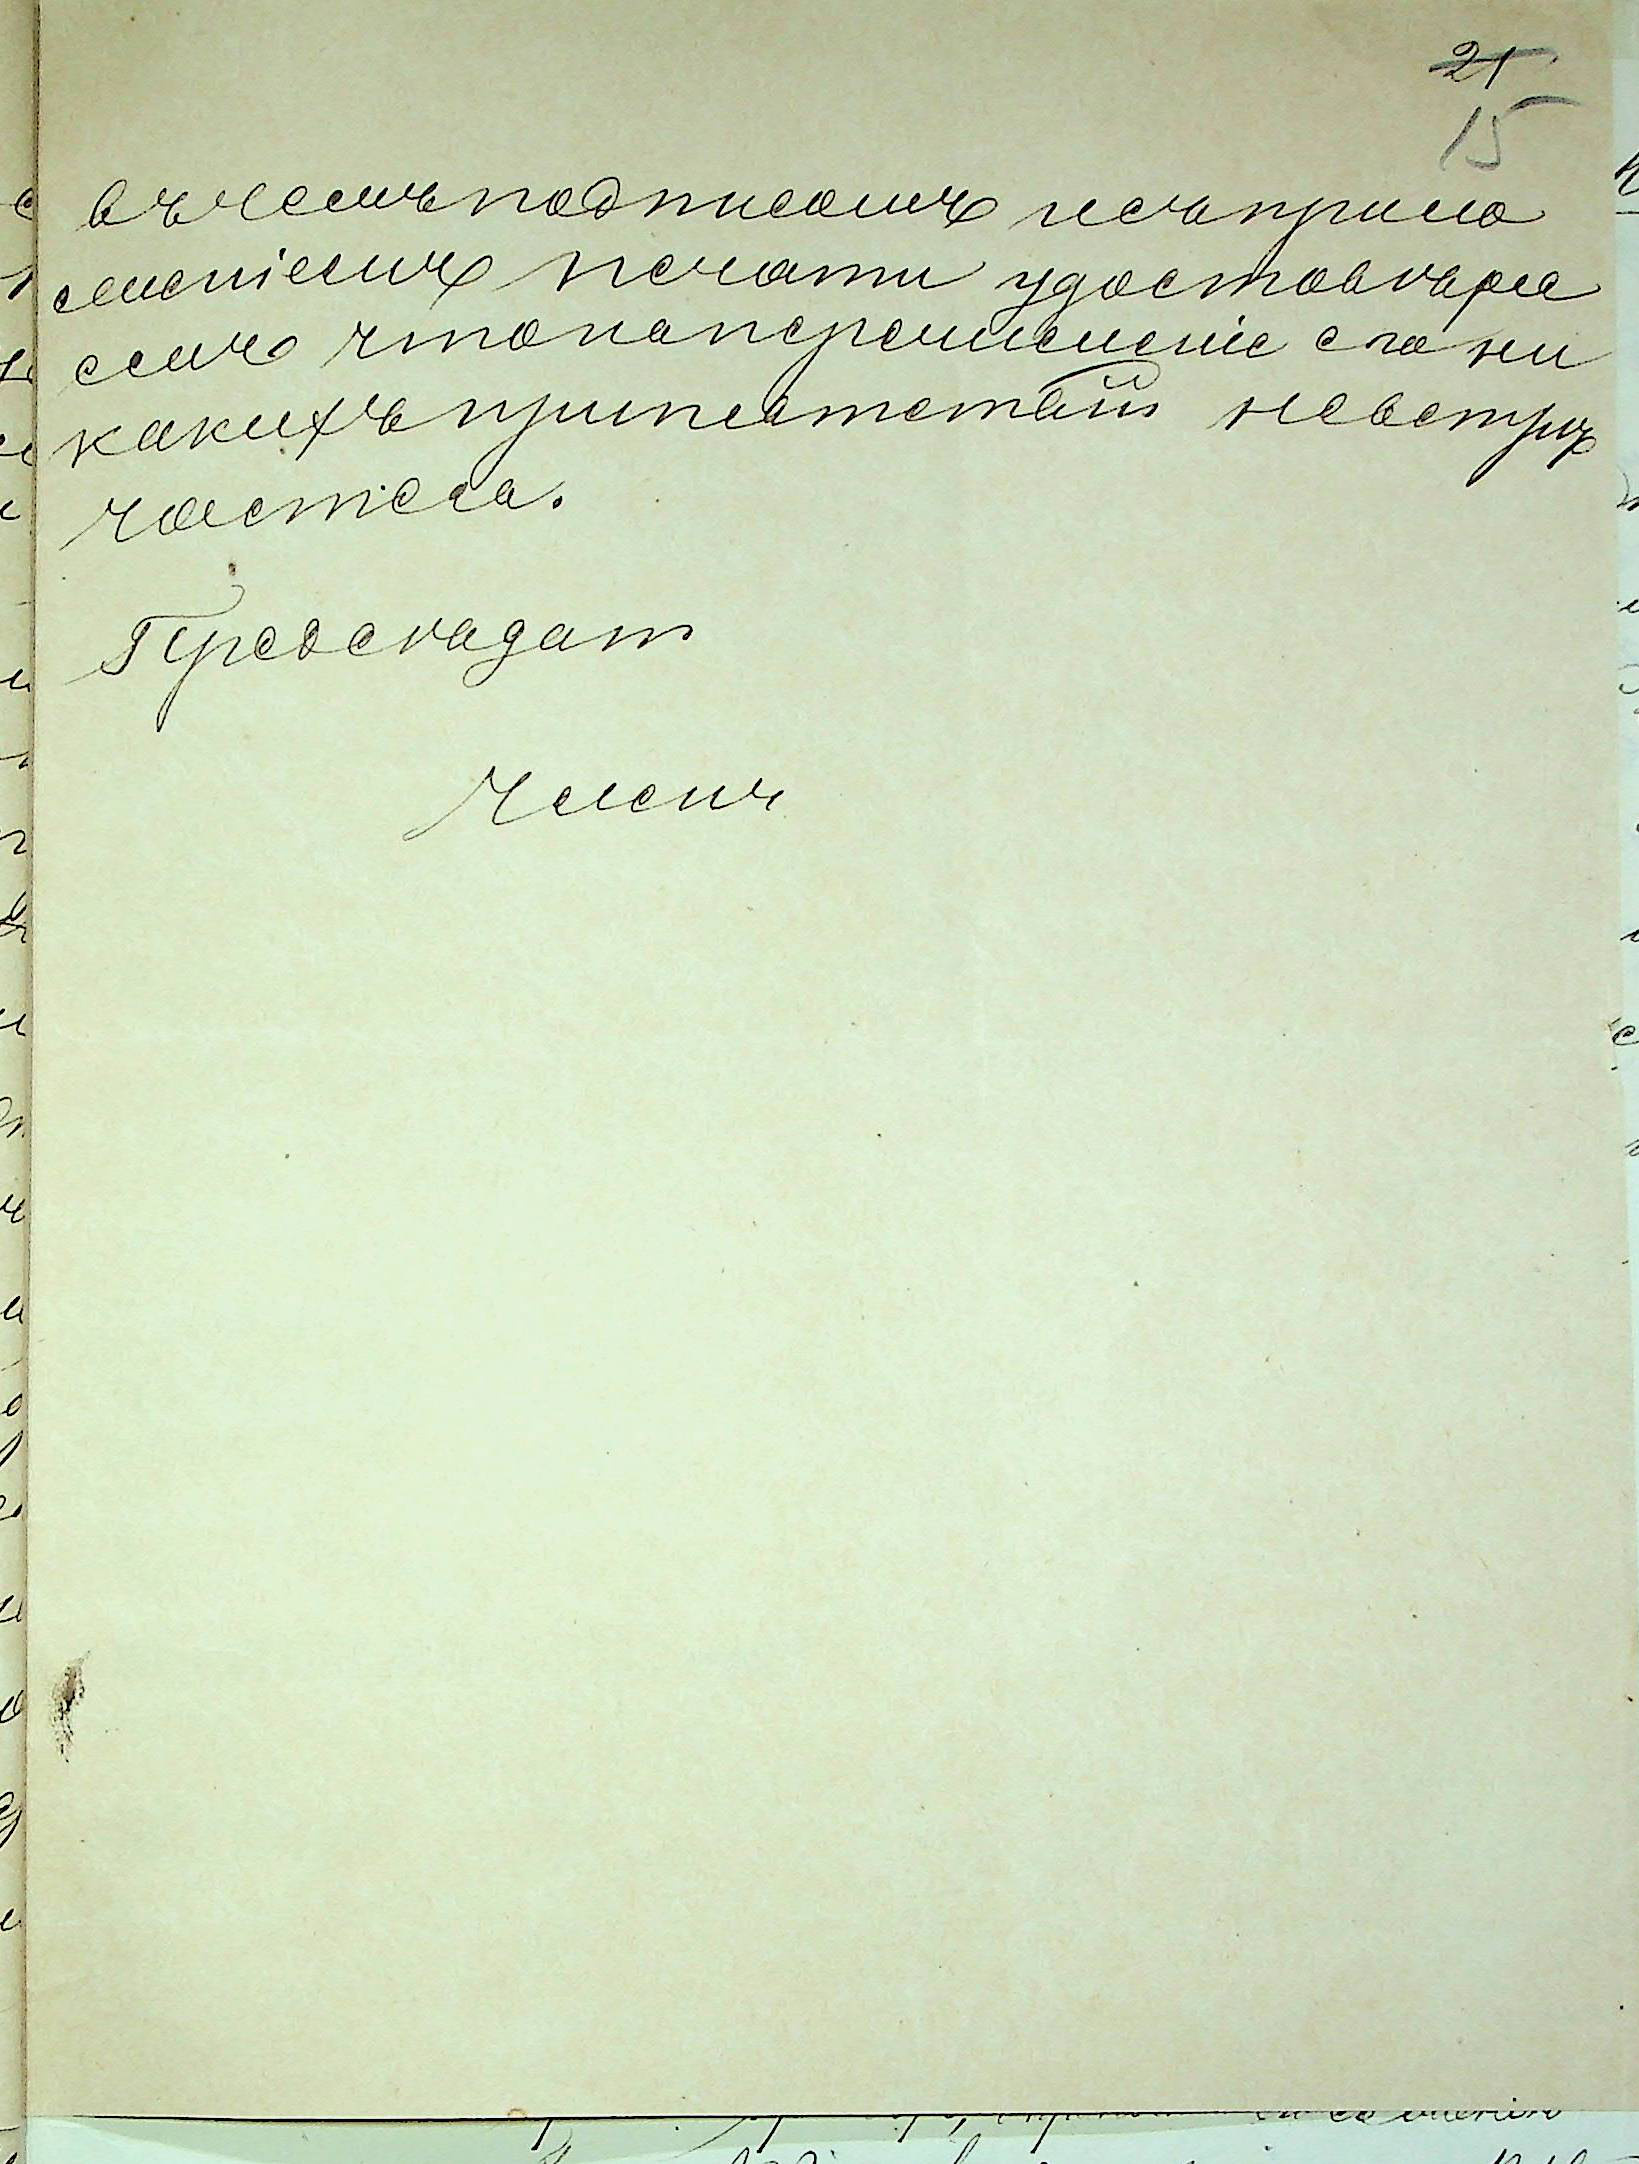 21
15
въ чемъ подписомъ исъ прило
женіемъ печати удостовѣряе
емъ что на перечисленіе его ни
какихъ припятствій невстрѣ
чаетіса.
Предсѣдат
Членъ